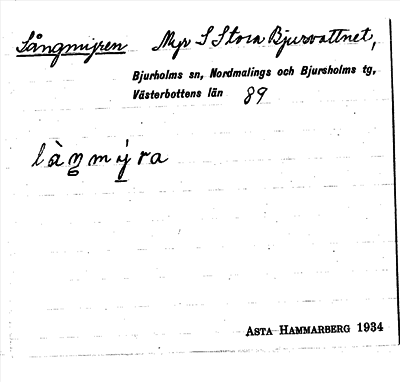 Långmyren Myr S Stora Bjurvattnet,
Bjurholms sn, Nordmalings och Bjursholms tg,
Västerbottens län 89
làŋmýra
ASTA HAMMARBERG 1934